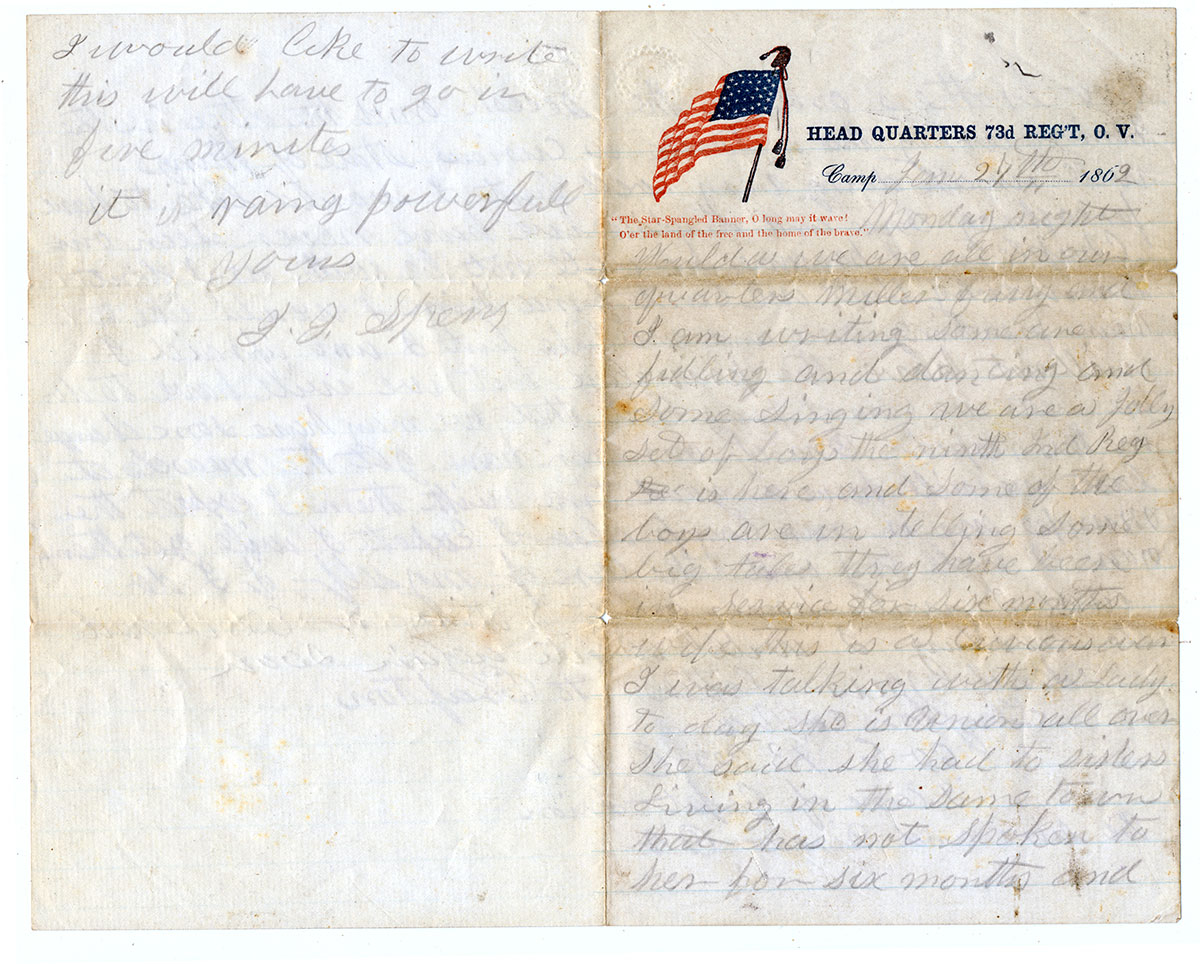 I would like to write
this will have to go in
five minites
it is raing powerfull
yours
J. J.
HEAD QUARTERS 73d REG'T, O. V.
Camp Jan 27th 1862
"The Star-Spangled Banner, O long may it wave!
O'er the land of the free and the home of the brave."
Monday night
we are all in our
quarters Miller and
I am writing some are
fidling and dancing and
some singing we are a jolly
set of boys the ninth Ind Reg
is here and some of the
boys are in telling some
big tales they have been
in service for six months
wife this is a curious war
I was talking with a lady
to day she is Union all over
she said she had to sisters
living in the same town
that has not spoken to
her for six months and